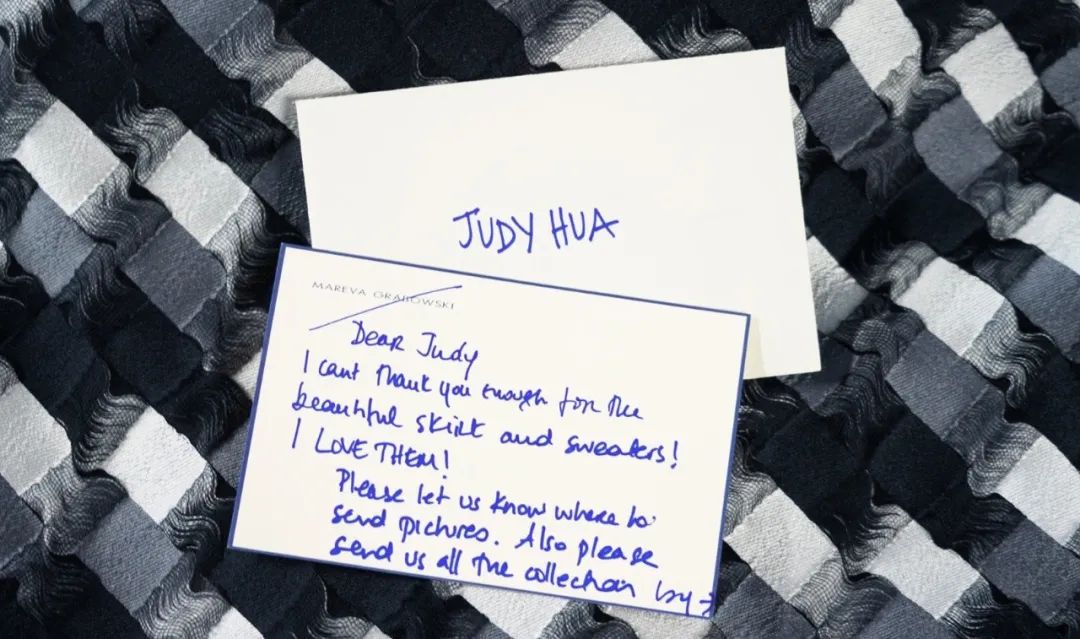 JUDY HUA
MAREVA GRABOWSKI
Dear Judy
I cant thank you enough for the
beautiful skirt and sweaters!
I LOVE THEM!
Please let us know where to
send pictures. Also please
send us all the collection by